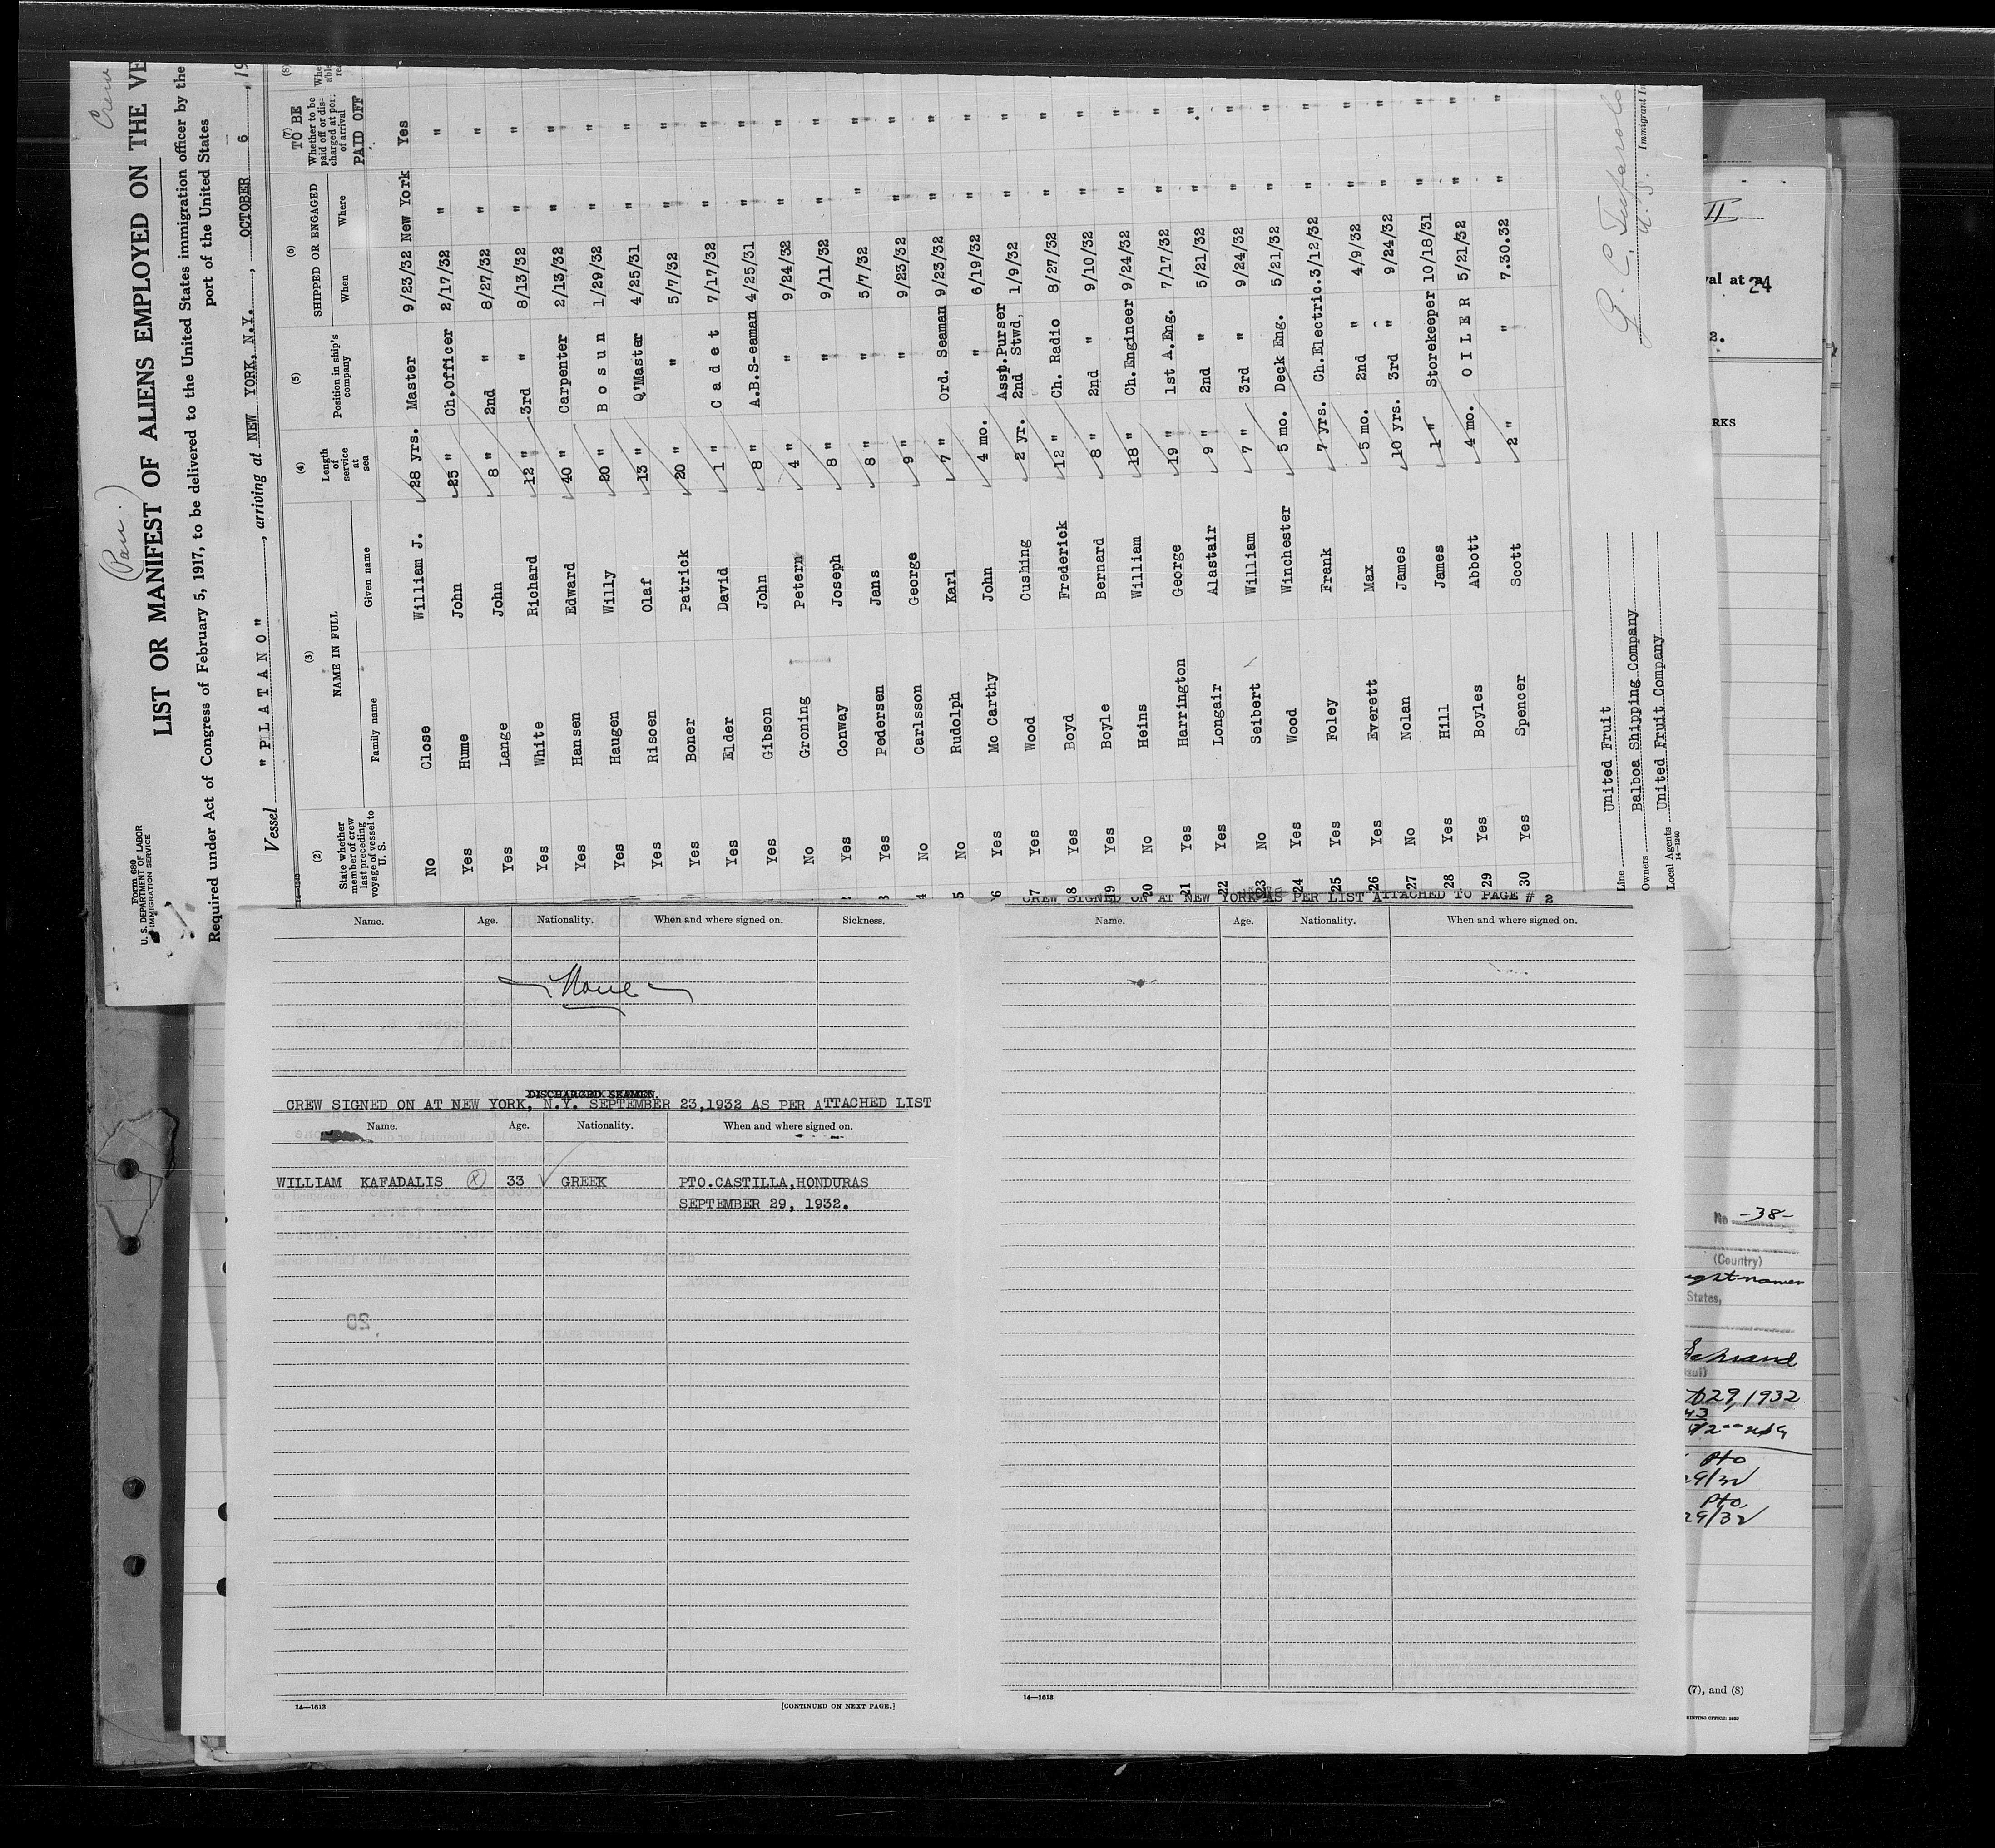 Crew
(Pan.)
Form 680
U. S. DEPARTMENT OF LABOR
IMMIGRATION SERVICE
LIST OR MANIFEST OF ALIENS EMPLOYED ON THE VE
Required under Act of Congress of February 5, 1917, to be delivered to the United States immigration officer by the
port of the United States
Vessel " P L A T A N O " , arriving at NEW YORK, N.Y. , OCTOBER 6 , 19
(2) (3) (4) (5) (6) (7) (8)
State whether member of crew last preceding voyage of vessel to U. S.
NAME IN FULL
Family name Given name
Length of service at sea
Position in ship's company
SHIPPED OR ENGAGED
When Where
TO BE
Whether to be paid off or discharged at port of arrival
PAID OFF
No Close William J. 28 yrs. Master 9/23/32 New York Yes
Yes Hume John 25 " Ch.Officer 2/17/32 " "
Yes Lange John 8 " 2nd " 8/27/32 " "
Yes White Richard 12 " 3rd " 8/13/32 " "
Yes Hansen Edward 40 " Carpenter 2/13/32 " "
Yes Haugen Willy 20 " B o s u n 1/29/32 " "
Yes Risen Olaf 13 " Q'Master 4/25/31 " "
Yes Boner Patrick 20 " " 5/7/32 " "
Yes Elder David 1 " C a d e t 7/17/32 " "
Yes Gibson John 8 " A.B.S-eaman 4/25/31 " "
No Groning Petern 4 " " 9/24/32 " "
Yes Conway Joseph 8 " " 9/11/32 " "
3 Yes Pedersen Jans 8 " " 5/7/32 " "
4 No Carlsson George 9 " " 9/23/32 " "
5 No Rudolph Karl 7 " Ord. Seaman 9/23/32 " "
6 Yes Mc Carthy John 4 mo. " 6/19/32 " "
17 Yes Wood Cushing 2 yr. Asst.Purser 2nd Stwd, 1/9/32 " "
18 Yes Boyd Frederick 12 " Ch. Radio 8/27/32 " "
19 Yes Boyle Bernard 8 " 2nd " 9/10/32 " "
20 No Heins William 18 " Ch.Engineer 9/24/32 " "
21 Yes Harrington George 19 " 1st A.Eng. 7/17/32 " "
22 Yes Longair Alastair 9 " 2nd " 5/21/32 " "
23 No Seibert William 7 " 3rd " 9/24/32 " "
24 Yes Wood Winchester 5 mo. Deck Eng. 5/21/32 " "
25 Yes Foley Frank 7 yrs. Ch.Electric. 3/12/32 " "
26 Yes Everett Max 5 mo. 2nd " 4/9/32 " "
27 No Nolan James 10 yrs. 3rd " 9/24/32 " "
28 Yes Hill James 1 " Storekeeper 10/18/31 " "
29 Yes Boyles Abbott 4 mo. O I L E R 5/21/32 " "
30 Yes Spencer Scott 2 " " 7.30.32 " "
Line United Fruit
Owners Balboa Shipping Company
Local Agents United Fruit Company
14—1240
Immigrant In
Name. Age. Nationality. When and where signed on. Sickness.
None
DISCHARGED SEAMEN.
CREW SIGNED ON AT NEW YORK, N.Y. SEPTEMBER 23,1932 AS PER ATTACHED LIST
Name. Age. Nationality. When and where signed on.
WILLIAM KAFADALIS (X) 33 GREEK PTO.CASTILLA,HONDURAS
SEPTEMBER 29, 1932.
14—1613 [CONTINUED ON NEXT PAGE.]
CREW SIGNED ON AT NEW YORK AS PER LIST ATTACHED TO PAGE # 2
Name. Age. Nationality. When and where signed on.
14—1613
II
val at a
24
2.
RKS
No -38-
(Country)
States,
29, 1932
43
Pto
29/32
Pto,
29/32
(7), and (8)